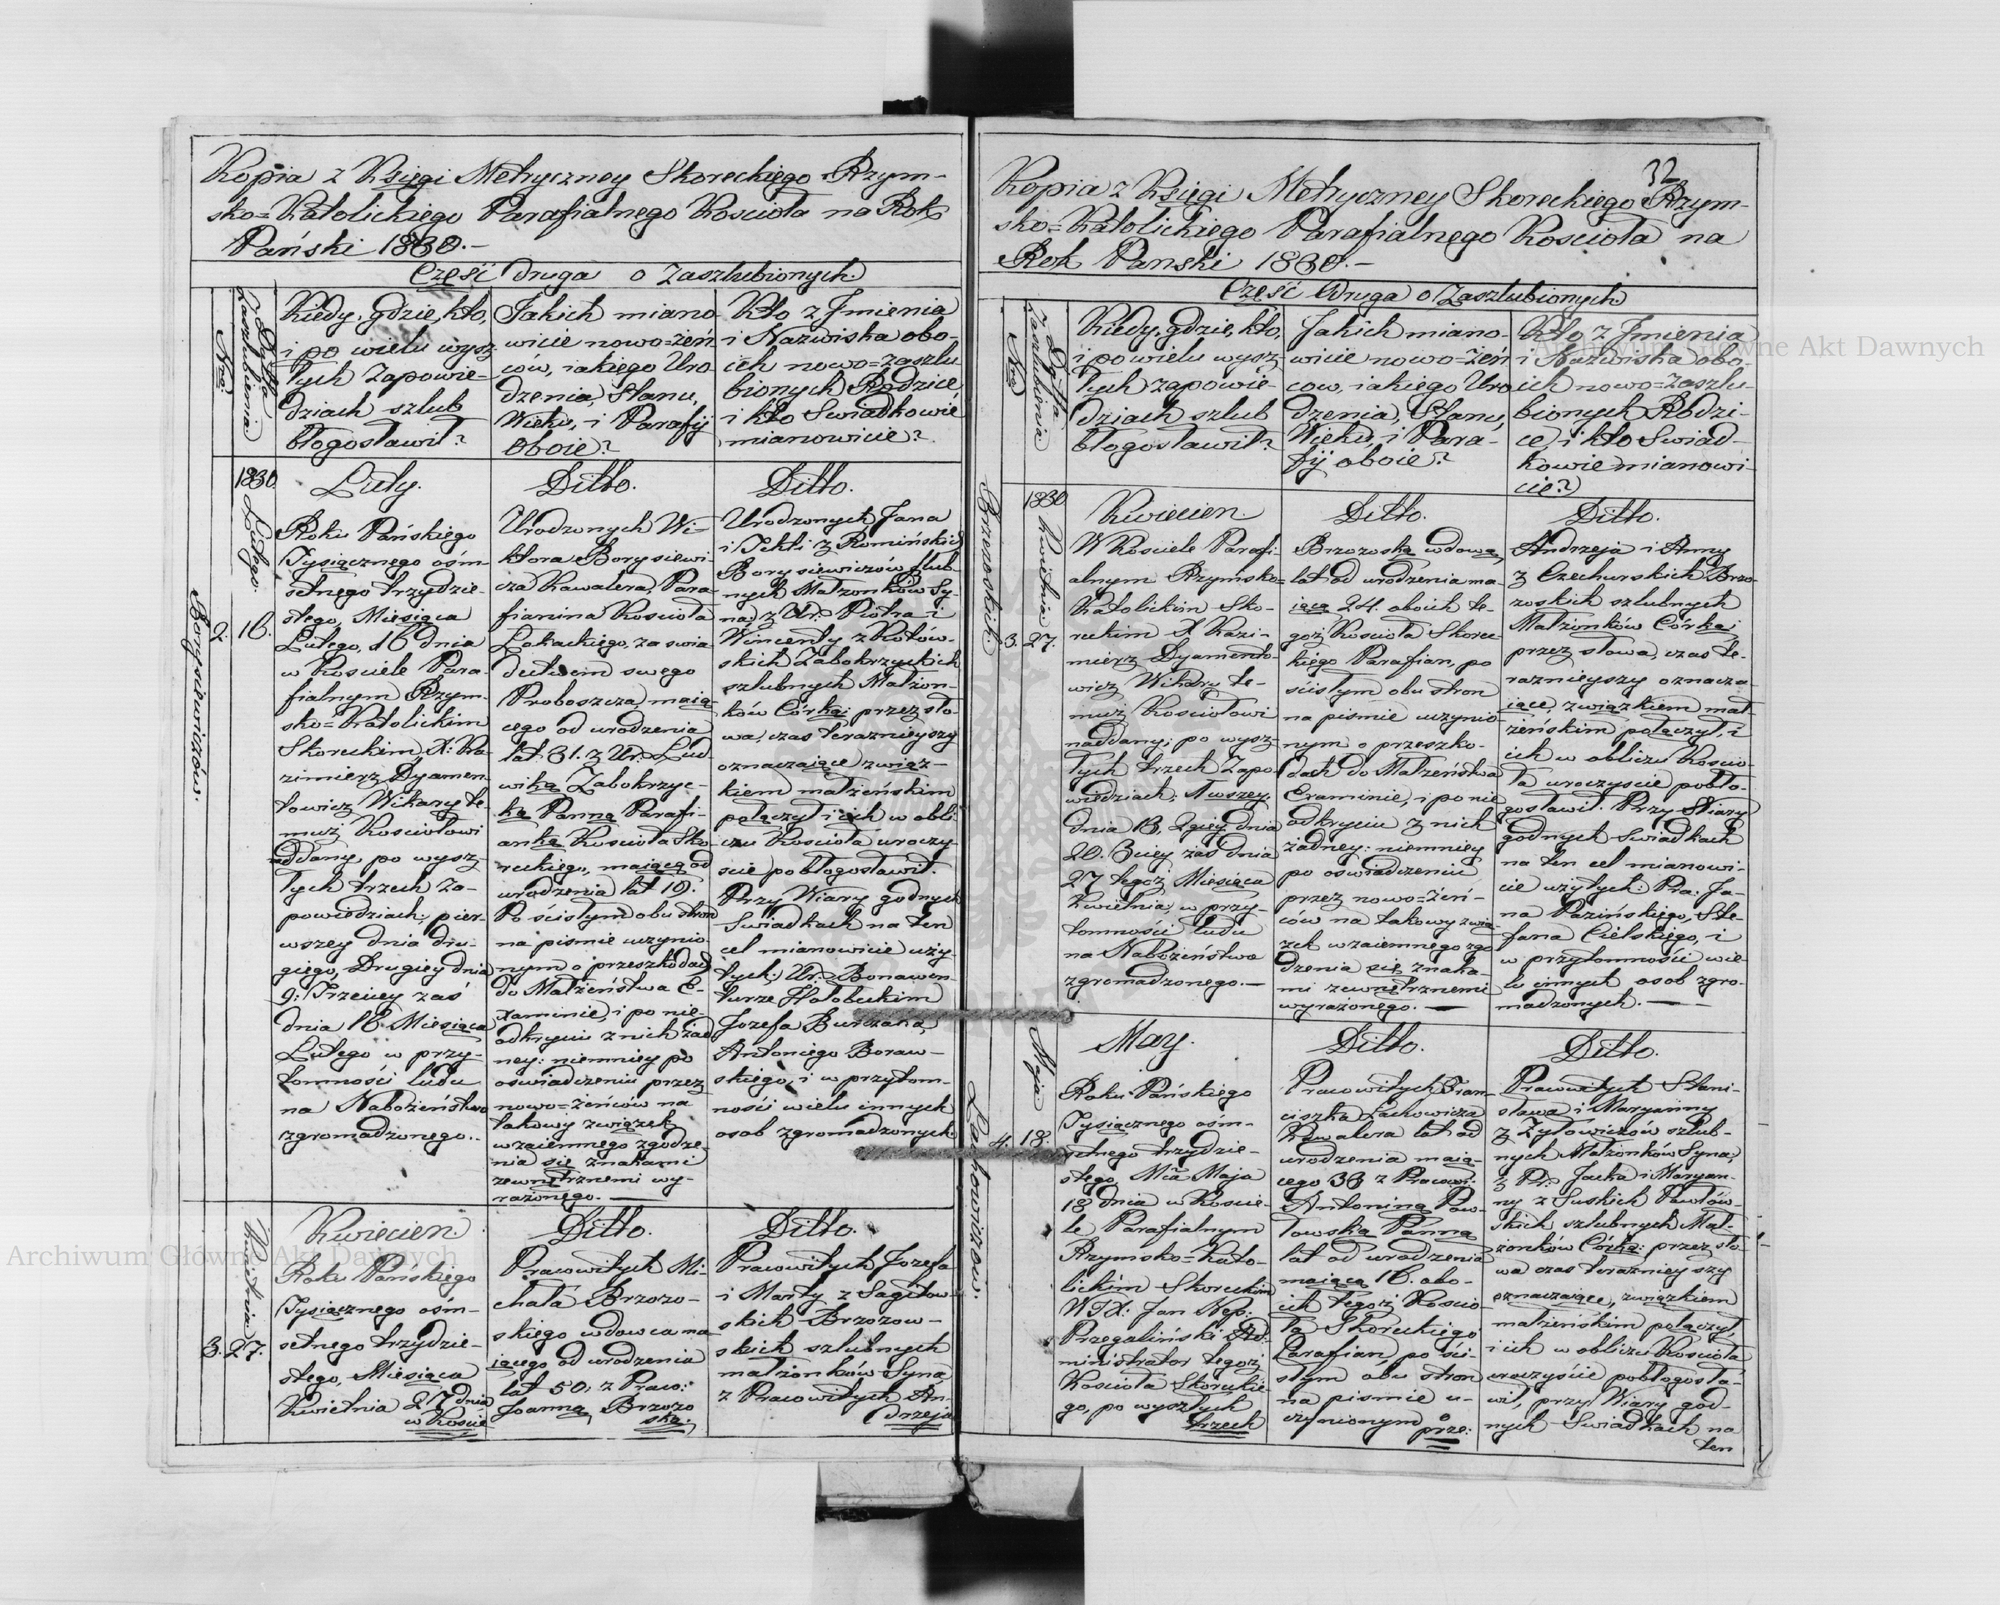 Kopia z Księgi Metryczney Skoreckiego Rzym-
sko=Katolickiego Parafialnego Koscioła na Rok
Pański 1830.-
Część druga o Zaszlubionych.
Nro.
Dátta Zaszlubienia
Kiedy, gdzie, kto,
i po wielu wysz
łych Zapowie-
dziach szlub
błogosławił?
Jakich miano
wicie nowo=żeń
ców, iakiego Uro
dzenia, Stanu,
Wieku, i Parafij
oboie?
Kto z Jmienia
i Nazwiska obo-
ich nowo=zaszlu
bionych Rodzice
i kto Swiadkowie
mianowicie?
Borysiewiczów.
2.
1830
Lutego.
16.
Luty.
Roku Pańskiego
Tysiącznego ośm-
setnego trzydzie-
stego, Miesiąca
Lutego, 16 dnia
w Kosciele Para-
fialnym Rzym-
sko=Katolickim
Skoreckim, X: Ka-
zimierz Dyamen-
towicz Wikary te-
muż Kosciołowi
naddany, po wysz-
łych trzech Za-
powiedziach, pier-
wszey dnia dru-
giego, Drugiey dnia
9: Trzeciey zaś
dnia 16 Miesiąca
Lutego w przy-
tomności ludu
na Nabożeństwo
zgromadzonego.-
Ditto.
Urodzonych Wi-
ktora Borysiewi-
cza Kawalera, Para-
fianina Kosciola
za swia
dectwem swego
Proboszcza, maią-
cego od urodzenia
lat 31. z Ur: Lud-
wiką Zabokrzyc-
ką Panną Parafi-
anką Kosciola Sko-
reckiego, maiącą od
urodzenia lat 19.
Po ścisłym obu stron
na pismie uczynio
nym o przeszkodach
do Małżeństwa E-
xaminie, i po nie-
odkryciu z nich żad
ney: niemniey po
oswiadczeniu przez
nowo=żeńców na
takowy związek
wzaiemnego zgodze-
nia się znakami
zewnętrznemi wy-
rażonego.
Ditto.
Urodzonych Jana
i Tekli z Romińskich
Borysiewiczów szlub-
nych Małżonków Sy-
na, z Ur: Piotra i
Wincenty z Kotow-
skich Zabokrzyckich
szlubnych Małżon-
ków Córką: przez sło-
wa, czas terazniejszy
oznaczaiące związ-
kiem małżeńskim
połączył i ich w obli
czu Kosciola uroczy-
scie pobłogosławił.
Przy Wiary godnych
Swiadkach na ten
cel mianowicie uży-
tych: Ur: Bonawen-
turze Hołobeckim
Jozefa Burzana,
Antoniego Boraw-
skiego, i w przytom-
ności wielu innych
osob zgromadzonych
3.
Kwietnia
27.
Kwiecien.
Roku Pańskiego
Tysiącznego ośm-
setnego trzydzie-
stego, Miesiąca
Kwietnia 27 dnia
w Kosciel
Ditto.
Pracowitych Mi-
chała Brzozo-
skiego wdowca ma
iącego od urodzenia
lat 50, z Praco:
Joanną, Brzozo
ską.
Ditto.
Pracowitych Jozefa
i Marty z Sagitow
skich Brzozow-
skich szlubnych
małżonków Syna
z Pracowitych An-
drzeja
32
Kopia z Księgi Metryczney Skoreckiego Rzym-
sko=Katolickiego Parafialnego Kosciola na
Rok Pański 1830.-
Część druga o Zaszlubionych
Nro
Dátta Zaszlubienia
Kiedy, gdzie, kto,
i po wielu wysz-
łych zapowie-
dziach szlub
błogosławił?
Jakich miano-
wicie nowo=żeń
cow, iakiego Uro
dzenia, Stanu,
Wieku, i Para-
fij oboie?
Kto z Jmienia
i Nazwiska obo-
ich nowo=zaszlu-
bionych Rodzi-
ce, i kto Swiad-
kowie mianowi-
cie?
Brzozoskich
3.
1830
Kwietnia
27.
Kwiecien.
W Kosciele Parafi-
alnym Rzymsko=
Katolickim Sko-
reckim X Kazi-
mierz Dyamento-
wicz Wikary te-
muż Kosciołowi
naddany, po wysz-
łych trzech Zapo
wiedziach, 1wszey,
dnia 13, 2giey dnia
20. 3ciey zas dnia
27 tegoż Miesiąca
Kwietnia, w przy-
tomności ludu
na Nabożeństwo
zgromadzonego.-
Ditto.
Brzozoską wdową,
lat od urodzenia ma
iącą 24. oboih te-
goż Kosciola Skorec
kiego Parafian, po
ścisłym obu stron
na pismie uczynio-
nym o przeszko-
dach do Małżeństwa
Examinie, i po nie
odkryciu z nich
żadney: niemniey
po oswiadczeniu
przez nowo=żeń-
ców na takowy zwią-
zek wzaiemnego zgo
dzenia się znaka-
mi zewnętrznemi
wyrażonego.
Ditto.
Andrzeja i Anny
z Czechurskich Brzo-
zoskich szlubnych
Małżonków Córką:
przez słowa, czas te-
raznieyszy oznacza
iące, związkiem mał-
żeńskim połączył, i
ich w obliczu Koscio-
ła uroczyscie pobło-
gosławił. Przy Wiary
godnych swiadkach
na ten cel mianowi-
cie użytych: Pra: Ja-
na Pazińskiego, Ste-
fana Cielskiego, i
w przytomności wie-
lu innych osob zgro-
madzonych.
Lachowiczów.
4.
Maja
18.
May.
Roku Pańskiego
Tysiącznego ośm-
setnego trzydzie-
stego, Mca Maja
18 dnia w Koscie-
le Parafialnym
Rzymsko=Kato-
lickim Skoreckim
WJX: Jan Nep:
Przegaliński Ad-
ministrator tegoż
Kosciola Skorecki-
go, po wyszłych
trzech
Ditto.
Pracowitych Fran-
ciszka Lachowicza
Kawalera lat od
urodzenia maią-
cego 33 z Pracowi:
Antoniną Paw-
łowską Panną
lat od urodzenia
maiącą 16. obo-
ich tegoż Koscio-
ła Skoreckiego
Parafian, po ści-
słym obu stron
na pismie u-
czynionym o
prze:
Ditto.
Pracowitych Stani-
sława i Maryanny
z Zytowiczów szlub-
nych Małżonków Syna,
z Pr: Jacka i Maryan-
ny z Suskich Pawłow-
skich szlubnych Mał-
żonków Córką: przez sło-
wa czas teraznieyszy
oznaczaiące, związkiem
małżeńskim połączył,
i ich w obliczu Kosciola
uroczyście pobłogosła-
wił, przy Wiary god-
nych Swiadkach na
ten
Archiwum Główne Akt Dawnych
Archiwum Główne Akt Dawnych